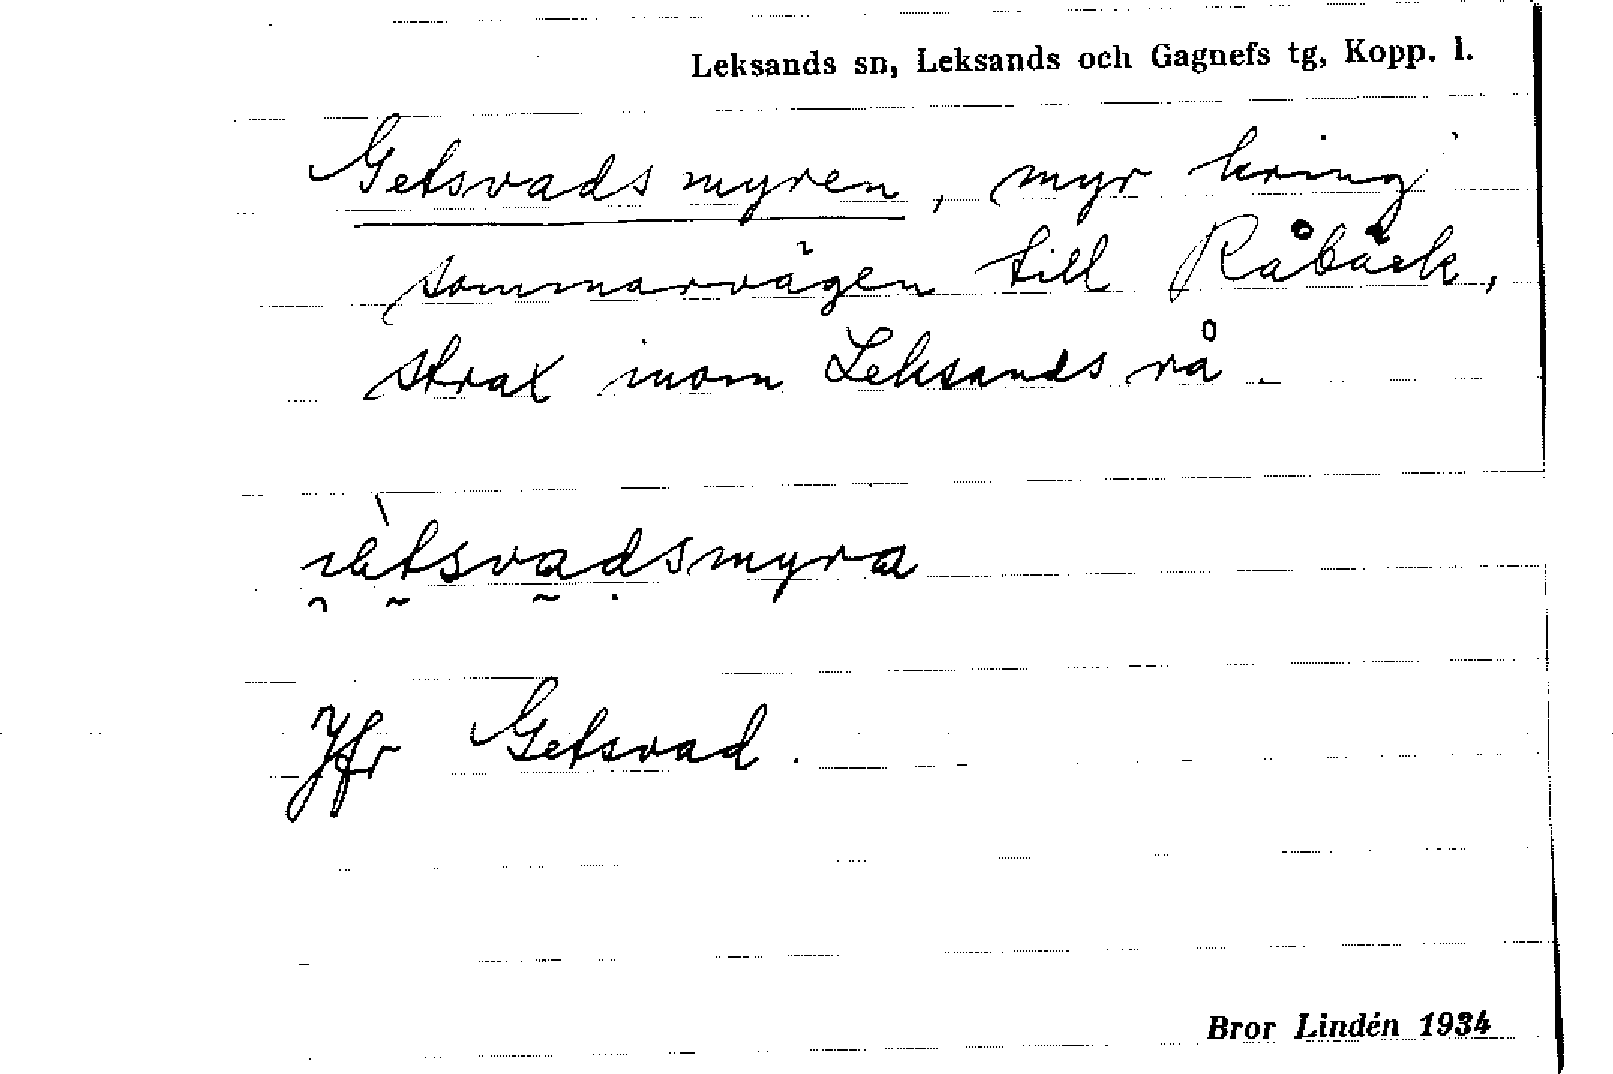 Leksands sn, Leksands och Gagnefs tg, Kopp. l.
Getsvadsmyren, myr kring
sommarvägen till Råbäck,
strax inom Leksands rå.
Jfr Getsvad.
Bror Lindén 1934